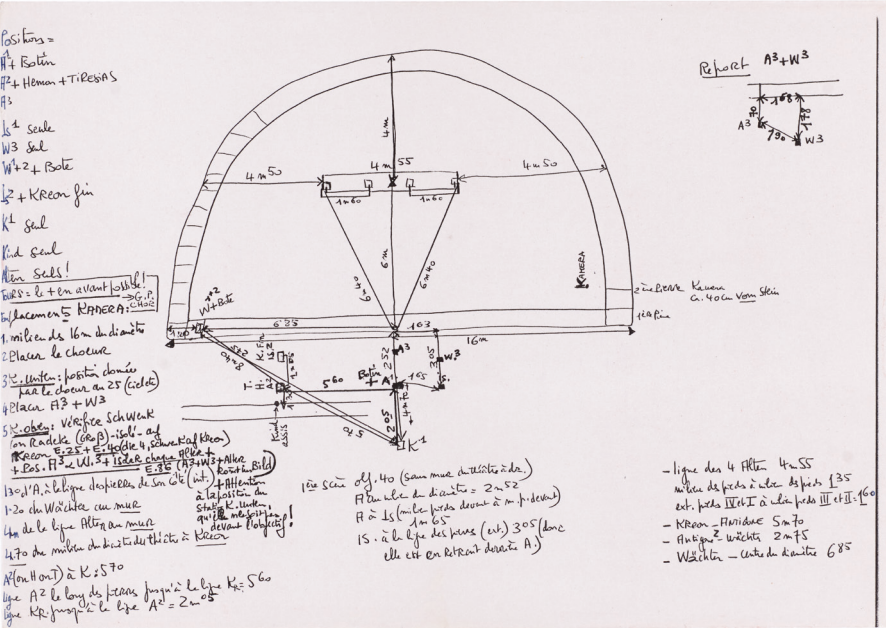 Positions =
A¹ + Botin
A² + Hemon + TiRESiAS
A³
Is¹ seule
W3 seul
W¹+2 + Bote
Is² + KREON fin
K¹ seul
Kind seul
Alten seuls!
TOURS = le + en avant possible!
→ G.P. CHOR
Emplacements KAMERA:
1. milieu des 16m du diamètre
2 Placer le choeur
3 K. unten: position donnée
par le choeur au 25 (ciclete)
4 Placer A³ + W3
5 K. oben: Vérifier Schwenk
von Radeke (GRoß) - isolé - auf
KREON E.25 + E.40 die 4, schwenk auf Kreon
+ Pos. A³ W.³ + Is der chaque Alter +
E.86 (A³+W3+Alter
Rost im Bild)
130 d'A. à la ligne des pierres de son côté (int.)
1.20 du Wächter au mur
4m de la ligne Alten au mur
+ Attention
à la position du
Stativ K. unten,
devant l'objectif!
4.70 du milieu du diamètre du théâtre à KREON
A² (ou H ou T) à K: 570
ligne A² le long des pierres jusqu'à la ligne KR = 560
ligne KR. jusqu'à la ligne A² = 2m05
4m
4m50
4m 55
4m50
1m60
1m60
6m
6m40
6m40
KAMERA
2ème Pierre Kamera
ca. 40 cm vom Stein
1ère Pierre
W¹+2
W + Bote
120
6.85
163
16m
K. Fin
Is 2
T.
H.
A²
130
Kind
assis
560
570
252
A³
W.³
305
Botin
+ A¹
165
S.
205
K¹
1ère Scène obj. 40 (sans mur du théâtre à dr.)
A au milieu du diamètre = 2m52
A à Is (milieu pieds devant à m.p. devant)
1m65
IS. à la ligne des pierres (ext.) 305 (donc
elle est en retrait derrière A.)
Report A³ + W³
168
70
178
190
A³
W3
- ligne des 4 Alten 4m55
milieu des pieds à milieu des pieds 135
ext. pieds IV et I à milieu pieds III et II = 160
- KREON - Antigone 5m70
- Antigone² - Wächter 2m75
- Wächter - centre du diamètre 685